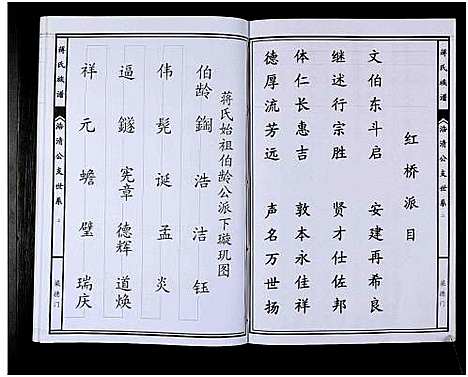 蒋氏族谱
浩清公支世系
二
红桥派目
文伯东斗启 安建再希良
继述行宗胜 贤才仕佐邦
体仁长惠吉 敦本永佳祥
德厚流芳远 声名万世扬
蒋氏始祖伯龄公派下璇玑图
伯龄 鋾 浩 洁 钰
伟 髡 诞 孟 炎
逼 鐩 宪章 德辉 道焕
祥 元 蟾 璧 瑞庆
蒋氏族谱
浩清公支世系
二